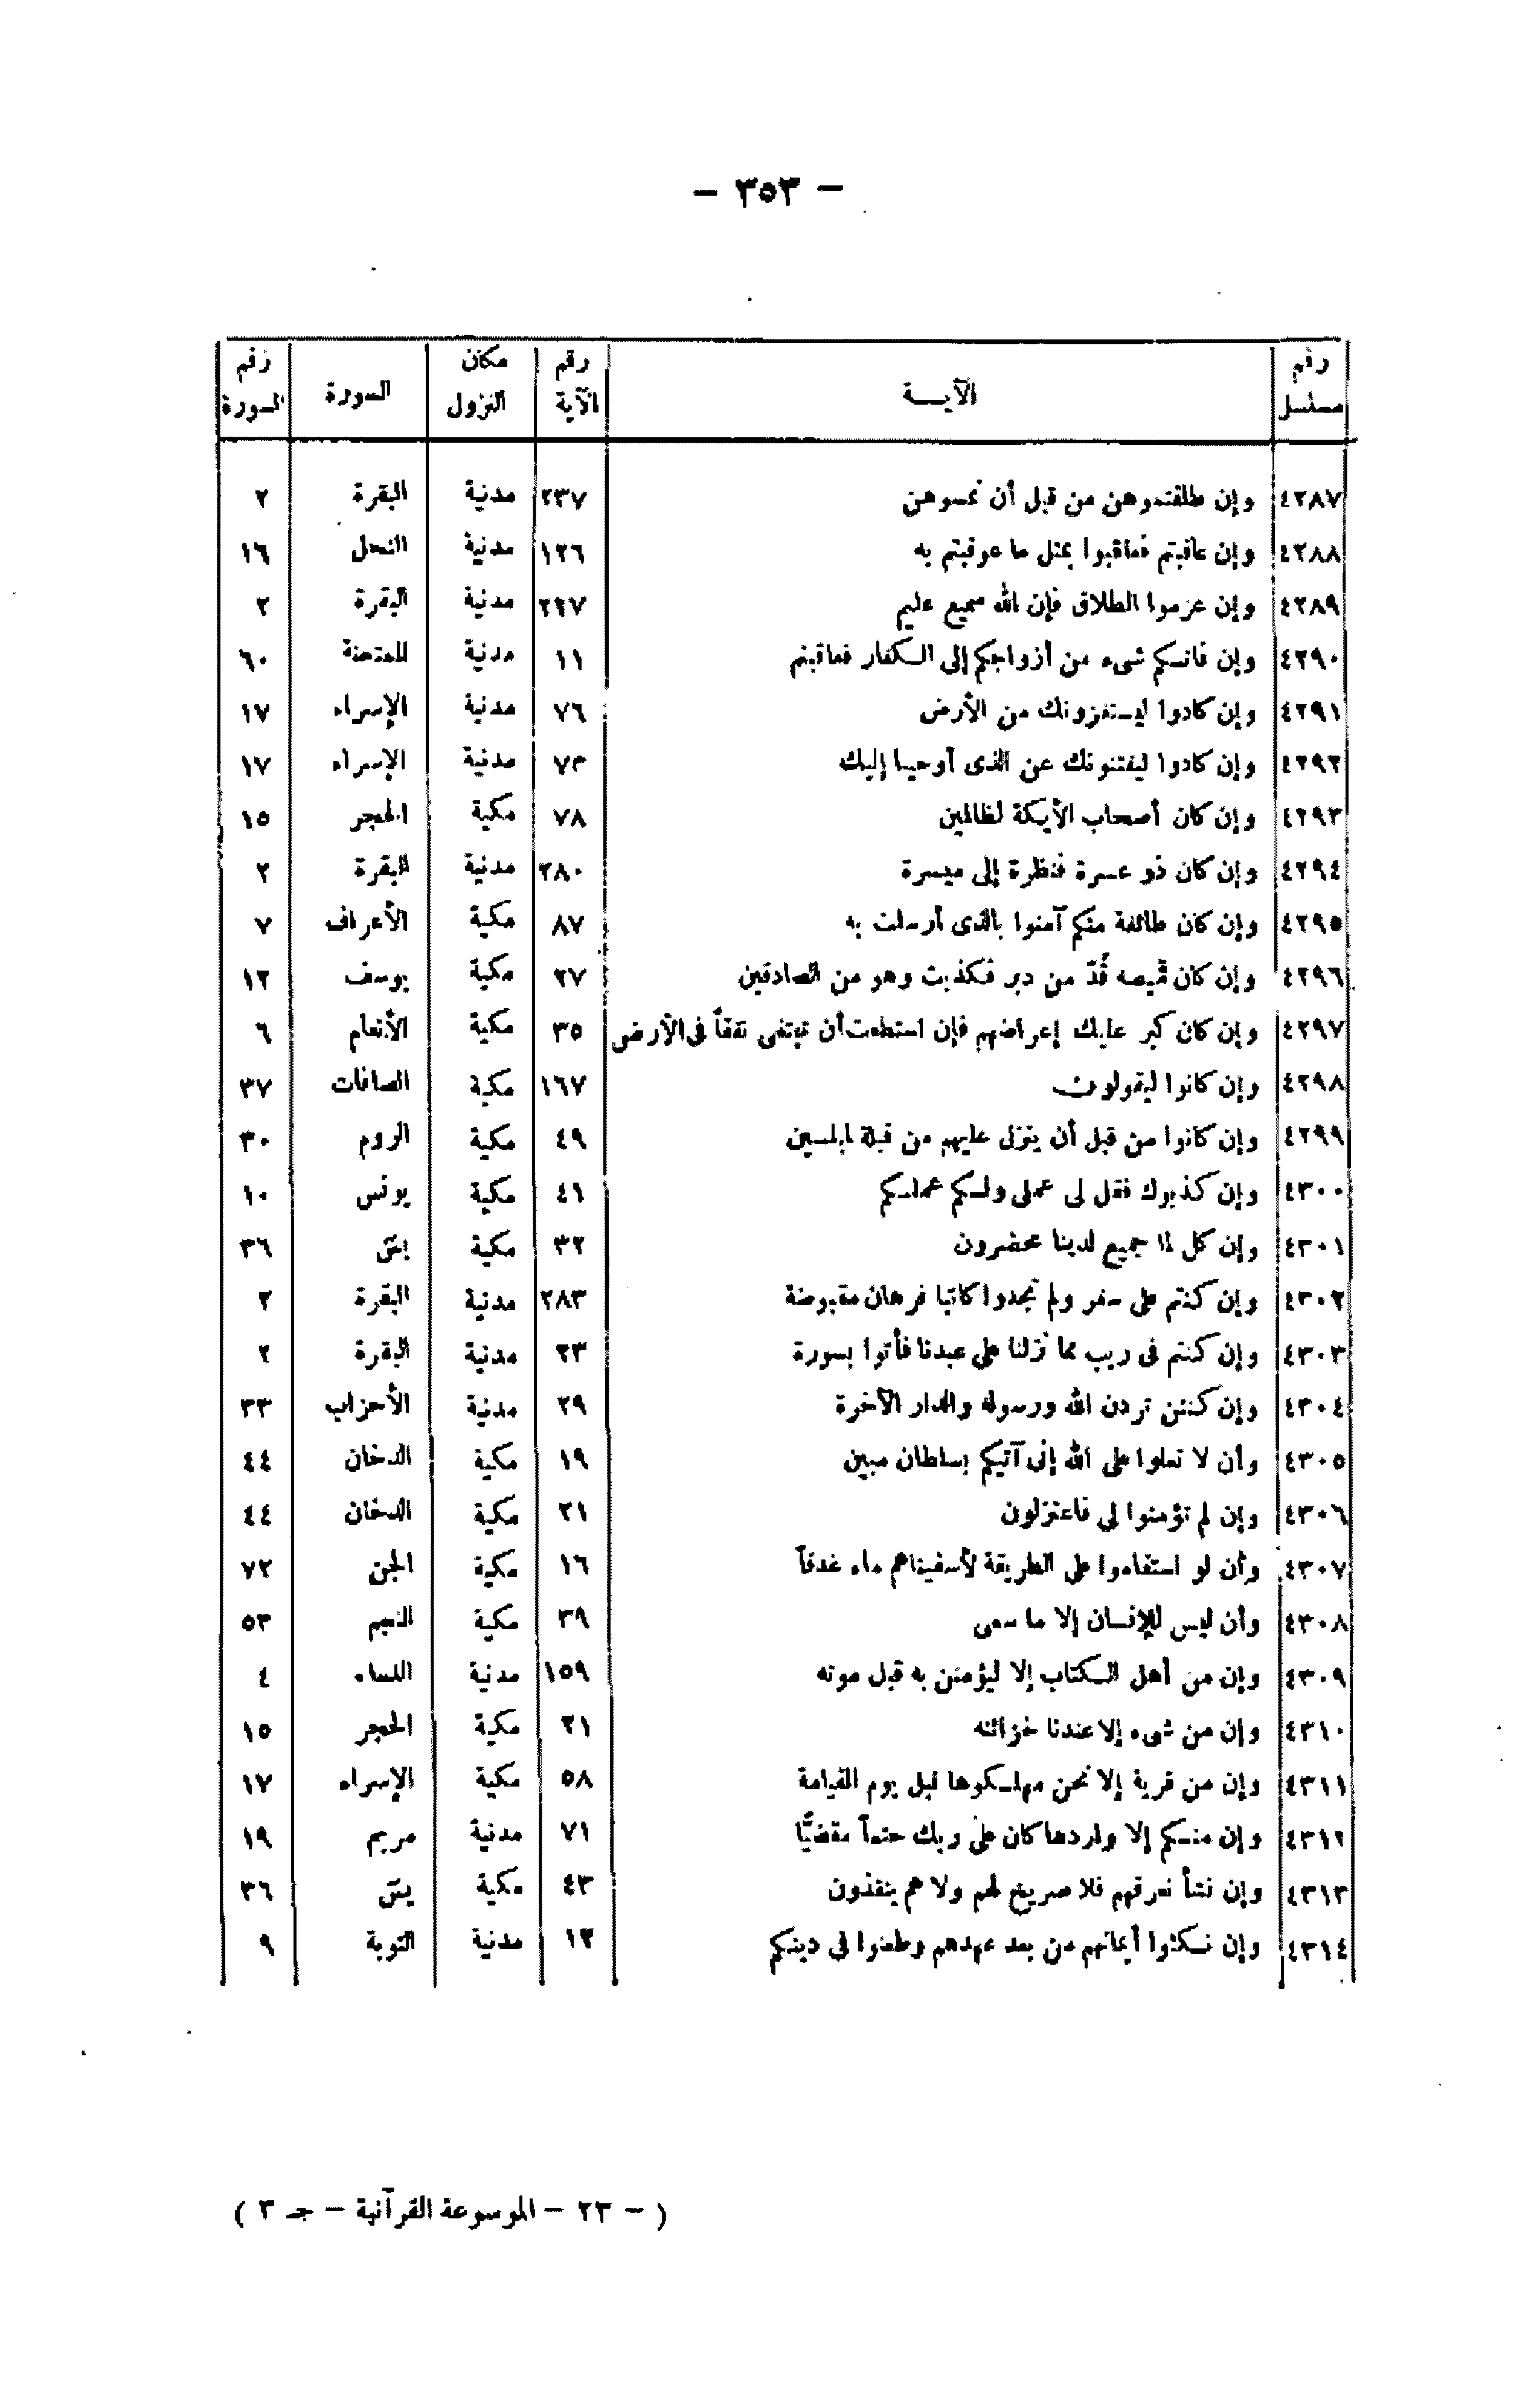 — ٣٥٣ —
رقم مسلسل | الآيـــة | رقم الآية | مكان النزول | السورة | رقم السورة
٤٢٨٧ | وإن طلقتموهن من قبل أن تمسوهن | ٢٣٧ | مدنية | البقرة | ٢
٤٢٨٨ | وإن عاقبتم فعاقبوا بمثل ما عوقبتم به | ١٢٦ | مدنية | النحل | ١٦
٤٢٨٩ | وإن عزموا الطلاق فإن الله سميع عليم | ٢٢٧ | مدنية | البقرة | ٢
٤٢٩٠ | وإن فاتكم شىء من أزواجكم إلى الكفار فعاقبتم | ١١ | مدنية | الممتحنة | ٦٠
٤٢٩١ | وإن كادوا ليستفزونك من الأرض | ٧٦ | مدنية | الإسراء | ١٧
٤٢٩٢ | وإن كادوا ليفتنونك عن الذى أوحينا إليك | ٧٣ | مدنية | الإسراء | ١٧
٤٢٩٣ | وإن كان أصحاب الأيكة لظالمين | ٧٨ | مكية | الحجر | ١٥
٤٢٩٤ | وإن كان ذو عسرة فنظرة إلى ميسرة | ٢٨٠ | مدنية | البقرة | ٢
٤٢٩٥ | وإن كان طائفة منكم آمنوا بالذى أرسلت به | ٨٧ | مكية | الأعراف | ٧
٤٢٩٦ | وإن كان قميصه قُدّ من دبر فكذبت وهو من الصادقين | ٢٧ | مكية | يوسف | ١٢
٤٢٩٧ | وإن كان كبر عليك إعراضهم فإن استطعت أن تبتغى نفقاً فى الأرض | ٣٥ | مكية | الأنعام | ٦
٤٢٩٨ | وإن كانوا ليقولون | ١٦٧ | مكية | الصافات | ٣٧
٤٢٩٩ | وإن كانوا من قبل أن ينزل عليهم من قبله لمبلسين | ٤٩ | مكية | الروم | ٣٠
٤٣٠٠ | وإن كذبوك فقل لى عملى ولكم عملكم | ٤١ | مكية | يونس | ١٠
٤٣٠١ | وإن كل لما جميع لدينا محضرون | ٣٢ | مكية | يس | ٣٦
٤٣٠٢ | وإن كنتم على سفر ولم تجدوا كاتبا فرهان مقبوضة | ٢٨٣ | مدنية | البقرة | ٢
٤٣٠٣ | وإن كنتم فى ريب مما نزلنا على عبدنا فأتوا بسورة | ٢٣ | مدنية | البقرة | ٢
٤٣٠٤ | وإن كنتن تردن الله ورسوله والدار الآخرة | ٢٩ | مدنية | الأحزاب | ٣٣
٤٣٠٥ | وأن لا تعلوا على الله إنى آتيكم بسلطان مبين | ١٩ | مكية | الدخان | ٤٤
٤٣٠٦ | وإن لم تؤمنوا لى فاعتزلون | ٢١ | مكية | الدخان | ٤٤
٤٣٠٧ | وأن لو استقاموا على الطريقة لأسقيناهم ماء غدقاً | ١٦ | مكية | الجن | ٧٢
٤٣٠٨ | وأن ليس للإنسان إلا ما سعى | ٣٩ | مكية | النجم | ٥٣
٤٣٠٩ | وإن من أهل الكتاب إلا ليؤمنن به قبل موته | ١٥٩ | مدنية | النساء | ٤
٤٣١٠ | وإن من شىء إلا عندنا خزائنه | ٢١ | مكية | الحجر | ١٥
٤٣١١ | وإن من قرية إلا نحن مهلكوها قبل يوم القيامة | ٥٨ | مكية | الإسراء | ١٧
٤٣١٢ | وإن منكم إلا واردها كان على ربك حتماً مقضيًّا | ٧١ | مدنية | مريم | ١٩
٤٣١٣ | وإن نشأ نغرقهم فلا صريخ لهم ولا هم ينقذون | ٤٣ | مكية | يس | ٣٦
٤٣١٤ | وإن نكثوا أيمانهم من بعد عهدهم وطعنوا فى دينكم | ١٢ | مدنية | التوبة | ٩
( — ٢٣ — الموسوعة القرآنية — جـ ٣ )